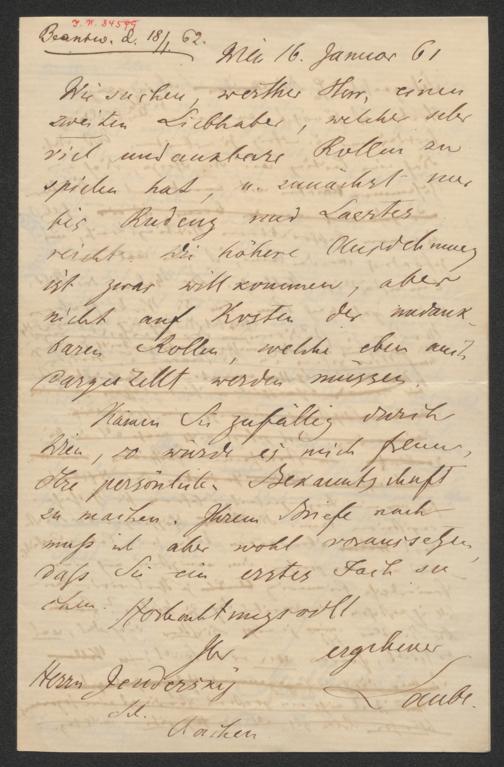 J. N. 84599
Beantw. d. 18/1 62.
Wien 16. Januar 61
Wir suchen, werther Herr, einen
zweiten Liebhaber, welcher sehr
viel undankbare Rollen zu
spielen hat, u. zunächst nur
bis Rudenz und Laertes
reicht. Die höhere Ausdehnung
ist zwar willkommen, aber
nicht auf Kosten der undank-
baren Rollen, welche eben auch
dargestellt werden müssen.
Kämen Sie zufällig durch
Wien, so würde es mich freuen,
Ihre persönliche Bekanntschaft
zu machen. Ihrem Briefe nach
muß ich aber wohl voraussetzen,
daß Sie ein erstes Fach su
chen. Hochachtungsvoll
Ihr ergebener
Herrn Jendersky Laube.
Aachen